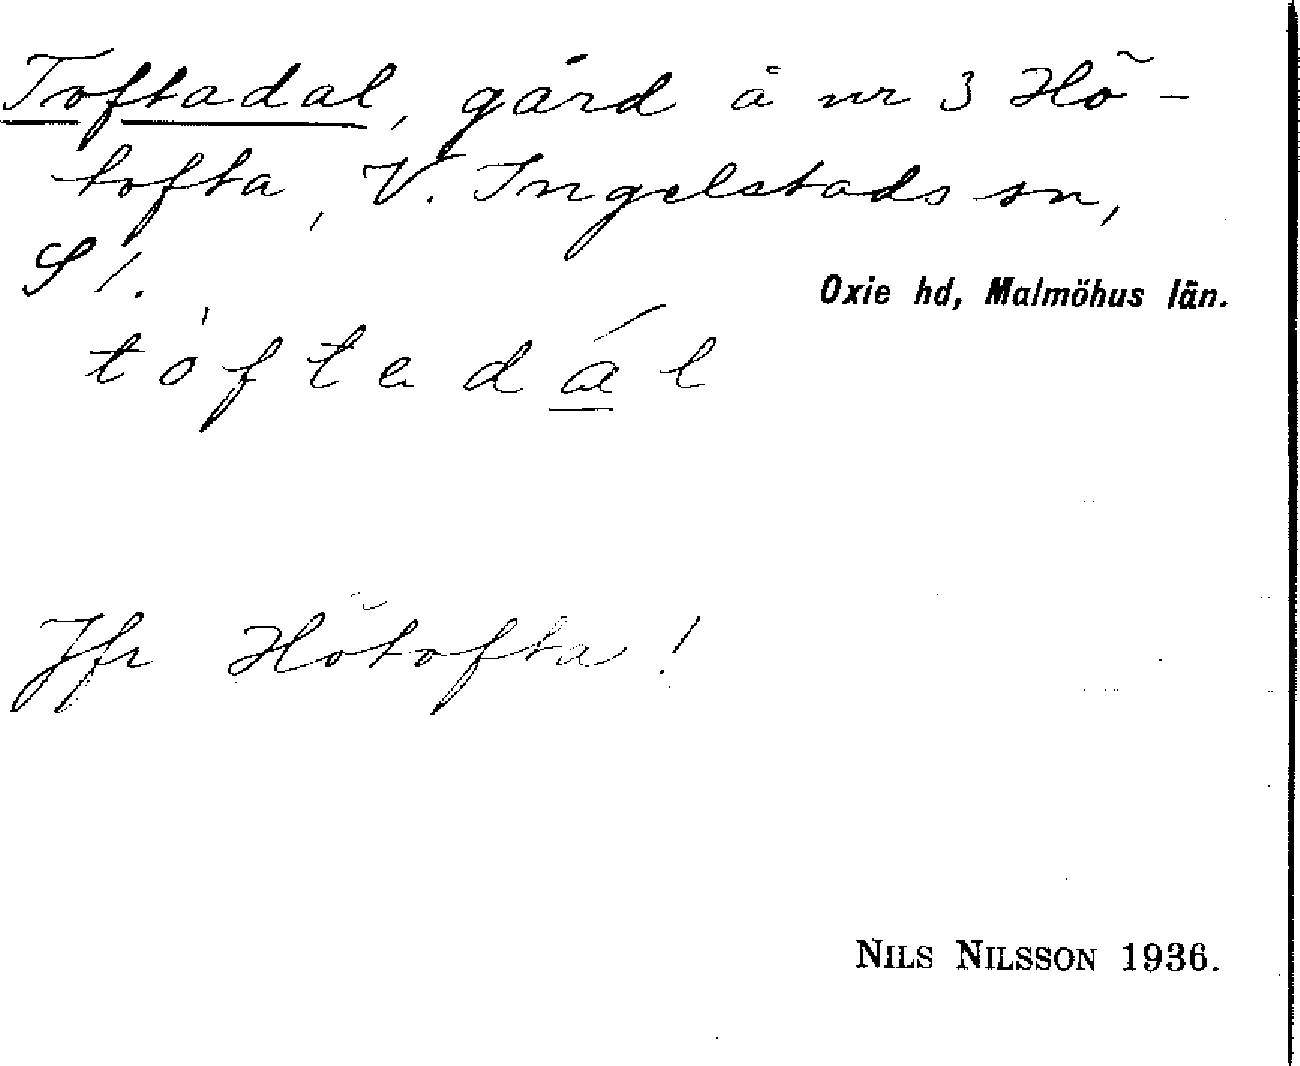 Toftadal, gård å nr 3 Hö-
tofta, V. Ingelstads sn,
S/.
Oxie hd, Malmöhus län.
tóftadál
Jfr Hötofta!
NILS NILSSON 1936.